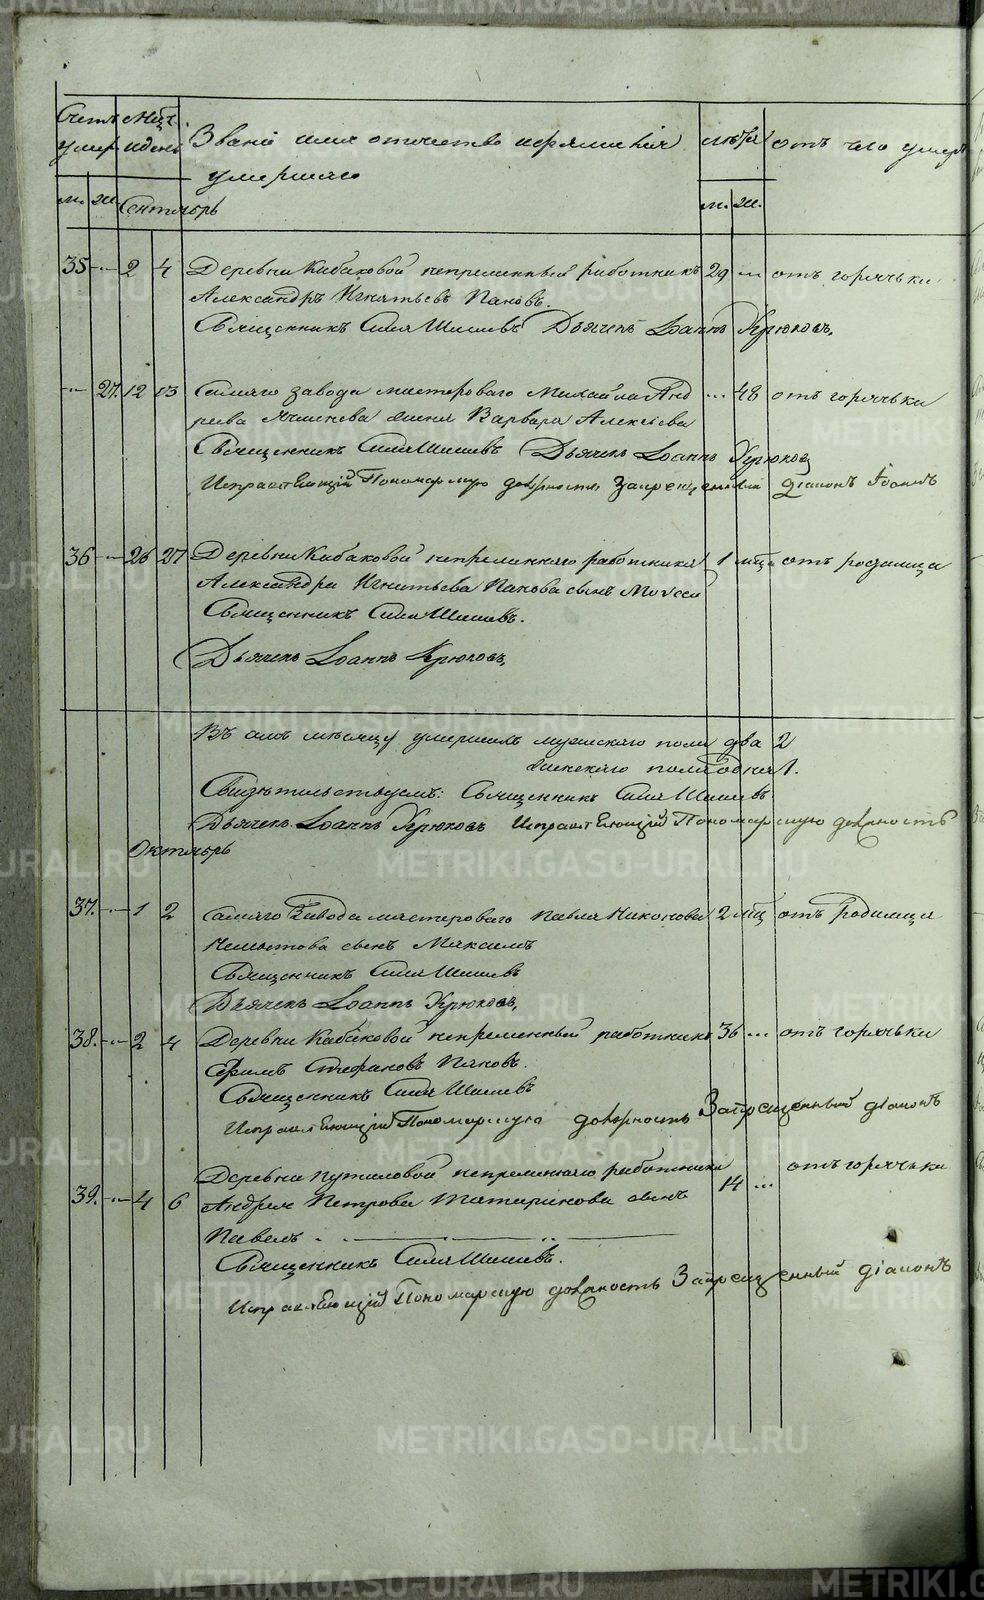 Счетъ умер. Мцъ и день Званіе имя отчество и фамилія умершаго лѣта отъ чего умеръ
м. ж. Сентябрь м. ж.
35 — 2 4 Деревни Кабаковой непременный работникъ 29 ... отъ горячьки
Александръ Игнатьевъ Пановъ.
Священникъ Сила Шишевъ Дьячекъ Іоаннъ Крюковъ,
— 27. 12 13 Самаго завода мастероваго Михайла Анд ... 48 отъ горячьки
реева жена Варвара Алексѣева
Священникъ Сила Шишевъ Дьячекъ Іоаннъ Крюковъ
Исправляющій Пономарскую должность Запрещенный діаконъ
36 — 26 27 Деревни Кабаковой непременнаго работника 1 мца отъ родимца
Александра Игнатьева Панова сынъ Моѵсей
Священникъ Сила Шишевъ.
Дьячекъ Іоаннъ Крюковъ,
Въ мѣсяцѣ умершихъ мужескаго пола два 2
женскаго пола одна 1.
Свидѣтельствуемъ: Священникъ Сила Шишевъ
Дьячекъ Іоаннъ Крюковъ Исправляющій Пономарскую должность
Октябрь
37. — 1 2 Самаго Завода мастероваго Павла Никонова 2 мц отъ Родимца
сынъ Максимъ
Священникъ Сила Шишевъ
Дьячекъ Іоаннъ Крюковъ,
38. — 2 4 Деревни Кабаковой непременный работникъ 36 ... отъ горячьки
Ефимъ Стефановъ Пановъ.
Священникъ Сила Шишевъ
Исправляющій Пономарскую должность Запрещенный діаконъ
39. — 4 6 Деревни Путиловой непременнаго работника 14 ... отъ горячьки
Андрея Петрова Татаринова сынъ
Павелъ
Священникъ Сила Шишевъ.
Исправляющій Пономарскую должность Запрещенный діаконъ
METRIKI.GASO-URAL.RU